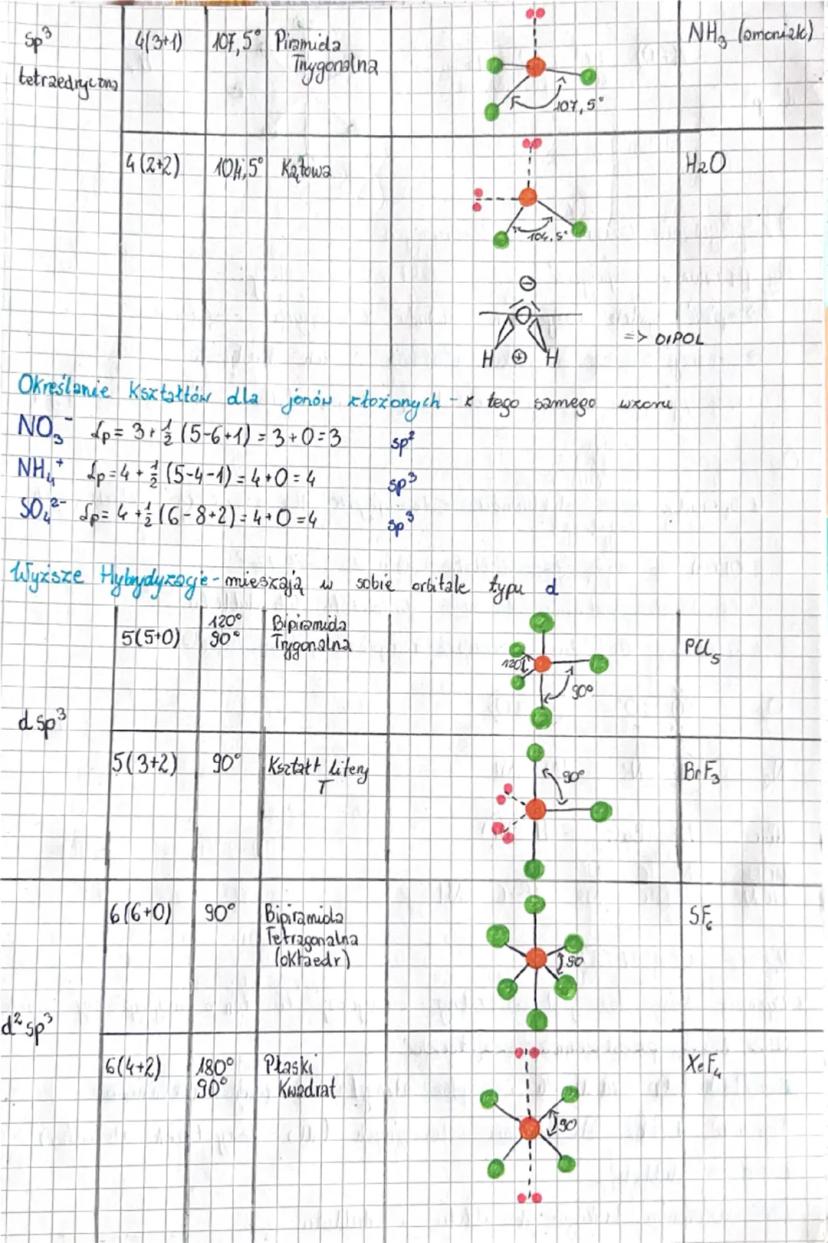 sp³
tetraedryczna
4(3+1)
107,5°
Piramida
Trygonalna
107,5°
NH₃ (amoniak)
4(2+2)
104,5°
Kątowa
104,5°
H₂O
⊖
O
H ⊕ H
=> DIPOL
Określanie kształtów dla jonów złożonych - z tego samego wzoru
NO₃⁻ Lp = 3 + ½ (5-6+1) = 3+0=3 sp²
NH₄⁺ Lp = 4 + ½ (5-4-1) = 4+0=4 sp³
SO₄²⁻ Lp = 4 + ½ (6-8+2) = 4+0=4 sp³
Wyższe Hybrydyzacje - mieszają w sobie orbitale typu d
dsp³
5(5+0)
120°
90°
Bipiramida
Trygonalna
120°
90°
PCl₅
5(3+2)
90°
Kształt litery
T
90°
BrF₃
d²sp³
6(6+0)
90°
Bipiramida
Tetragonalna
(oktaedr)
90
SF₆
6(4+2)
180°
90°
Płaski
Kwadrat
90
XeF₄